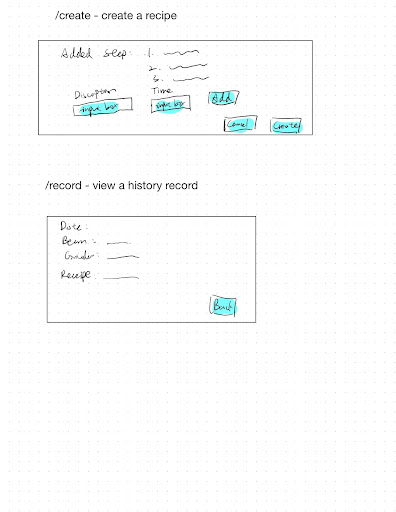 /create - create a recipe
Added Step: 1.
2.
3.
Discription Time
input bar input bar Add
Cancel Create
/record - view a history record
Date:
Bean:
Grinder:
Recipe:
Back